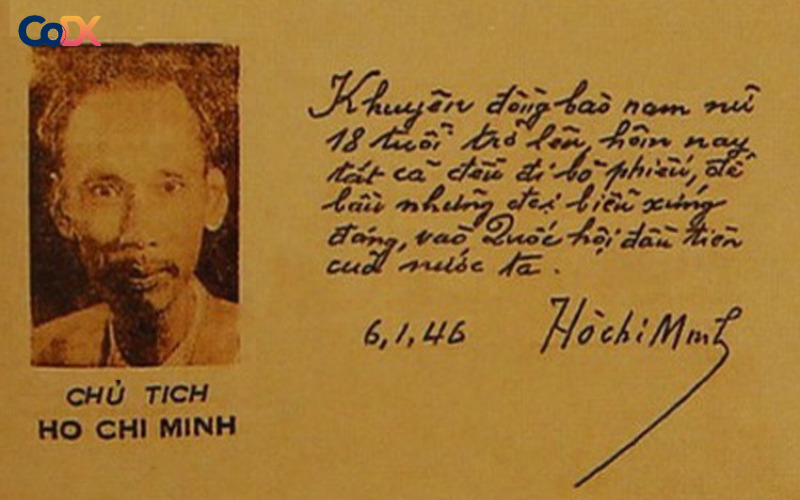 CoDX
Khuyên đồng bào nam nữ
18 tuổi trở lên, hôm nay
tất cả đều đi bỏ phiếu, để
bầu những đại biểu xứng
đáng, vào Quốc hội đầu tiên
của nước ta.
6,1,46 Hồ chí Minh
CHỦ TICH
HO CHI MINH